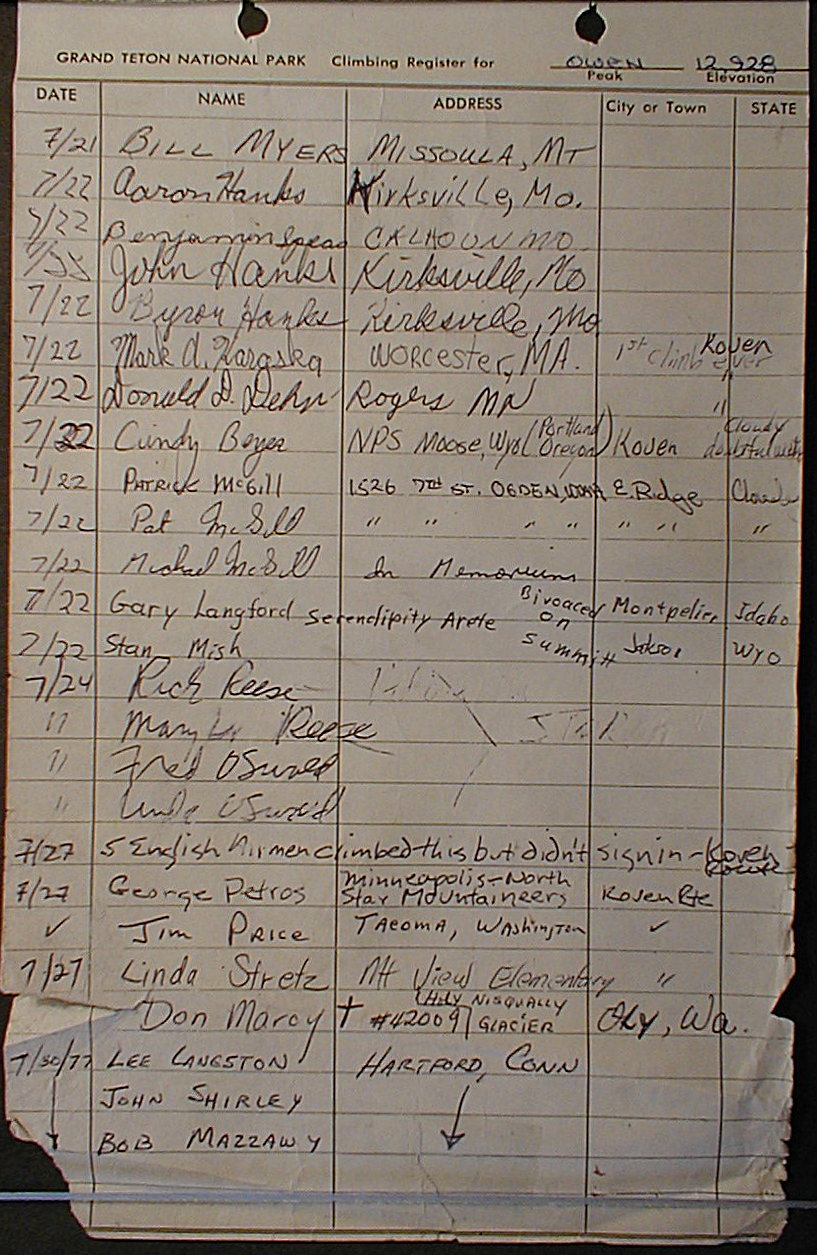 GRAND TETON NATIONAL PARK Climbing Register for OWEN 12,928
Peak Elevation
DATE NAME ADDRESS City or Town STATE
7/21 BILL MYERS MISSOULA, MT
7/22 Aaron Hanks Kirksville, Mo.
7/22 Benjamin Speas CALHOUN MO.
John Hanks Kirksville, Mo
7/22 Byron Hanks Kirksville, Mo
7/22 Mark A. Karaska WORCESTER, MA. 1st climb ever Koven
7/22 Donald D. Dehn Rogers MN "
7/22 Cindy Beyer NPS Moose, Wyo (Portland Oregon) Koven Cloudy doubtful
7/22 PATRICK McGill 1526 7TH ST. OGDEN, E. Ridge
7/22 Pat McGill " " " " " " "
7/22 Michael McGill In Memorium
7/22 Gary Langford Serendipity Arete Bivoaced on summitt Montpelier Idaho
7/22 Stan Mish Wyo
7/24 Rick Reese
" Mary Reese
" Fred OSwald
"
7/27 5 English Airmen climbed this but didn't sign in - Koven Route
7/27 George Petros Minneapolis - North Star Mountaineers Koven Rte
✓ JIM PRICE TACOMA, WASHINGTON ✓
7/27 Linda Stretz Mt View Elementary "
Don Marcy #42009 NISQUALLY GLACIER Oly, Wa.
7/30/77 LEE LANGSTON HARTFORD, CONN
JOHN SHIRLEY
BOB MAZZAWY